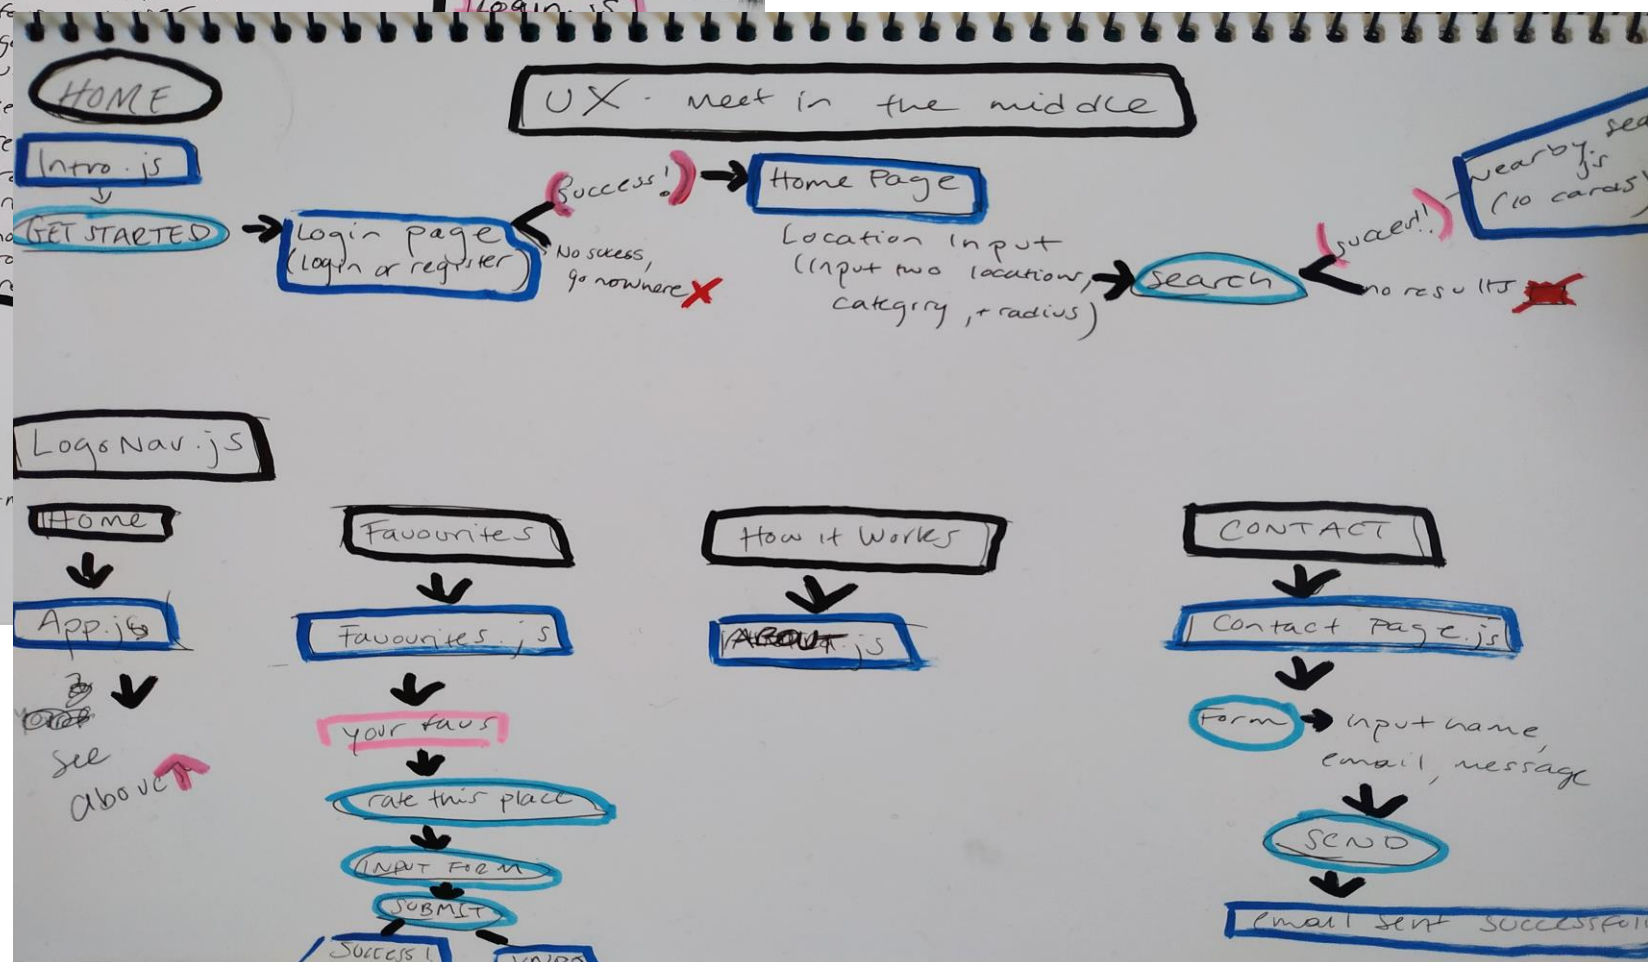 Login.js
HOME
UX - Meet in the middle
Intro.js
GET STARTED
Login page
(login or register)
(success!)
No sucess,
go nowhere X
Home Page
Location Input
(input two locations,
category, + radius)
search
(success!!)
no results
Nearby
js
(10 cards)
LogoNav.js
Home
App.js
see
above
Favourites
Favourites.js
your favs
rate this place
INPUT FORM
SUBMIT
SUCCESS!
How it Works
About.js
CONTACT
Contact Page.js
Form
input name,
email, message
SEND
email sent